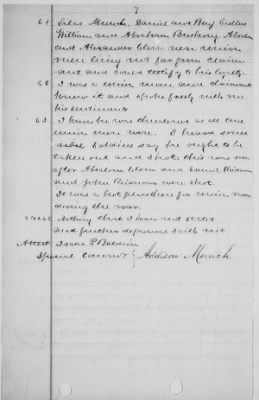 7
61 Silas Munch, Daniel and Benj
William and Abraham Bushong Abram
and Alexander Clem were union
men living not far from claim-
ant and could testify to his loyalty.
62 I was a union man and claimant
knew it and spoke freely with me
his sentiments
63 I know he was threatened as all
union men were. I heard some
rebel soldiers say he ought to be
taken out and shot. this was soon
after Abraham Clem and
and John were shot.
It was a hot place here for union men
during the war.
Nothing that I have not stated
and further deponent saith not
Attest Isaac P Baldwin
Special Commr } Addison Munch